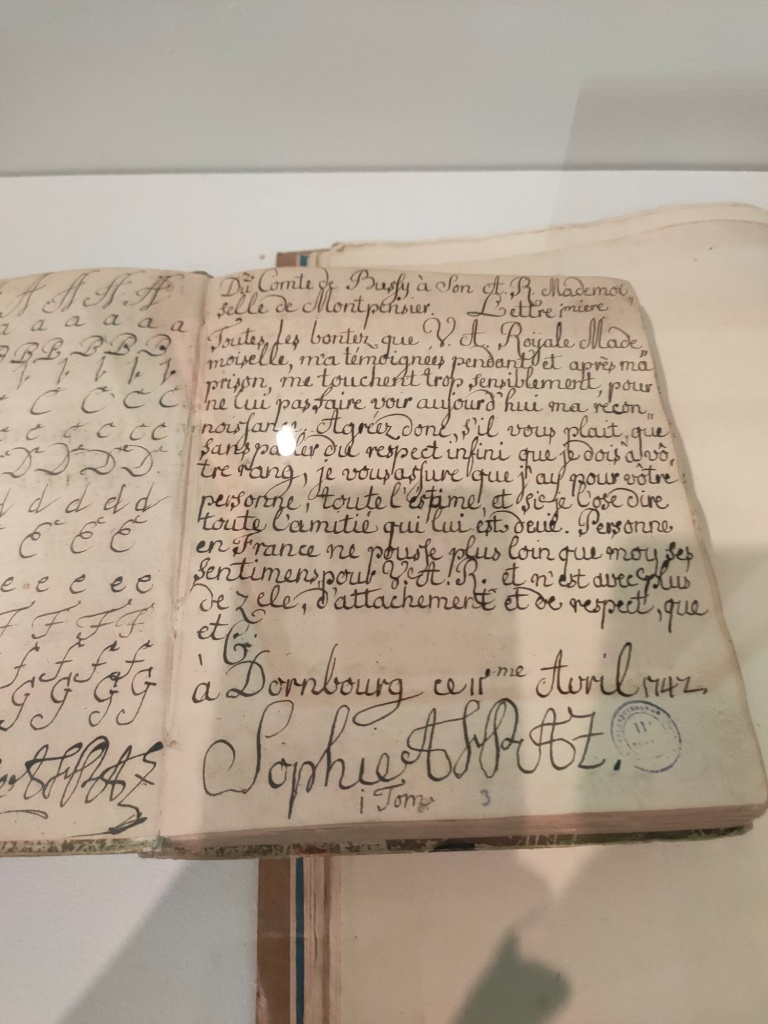 A A A A
a a a a a
B B B B B
C C C C
c c c c c
D D D D
d d d d
E E E
e e e e e
F F F F
f f f f
G G G G
Du Comte de Bussy à Son A. R. Mademoi„
selle de Montpensier. Lettre 1miere
Toutes les bontez que V. A. Royale Made„
moiselle, m'a témoignées pendant et après ma
prison, me touchent trop sensiblement, pour
ne lui pas faire voir aujourd'hui ma recon„
noissance. Agréez donc, s'il vous plait, que
sans parler du respect infini que je dois à vô„
tre rang, je vous assure que j'ay pour vôtre
personne, toute l'estime, et si je l'ose dire
toute l'amitié qui lui est deuë. Personne
en France ne pousse plus loin que moy ses
sentimens pour V. A. R. et n'est avec plus
de zele, d'attachement et de respect, que
et C.
à Dornbourg ce 11me Avril 1742.
Sophie A F P A Z.
1 Tom
3